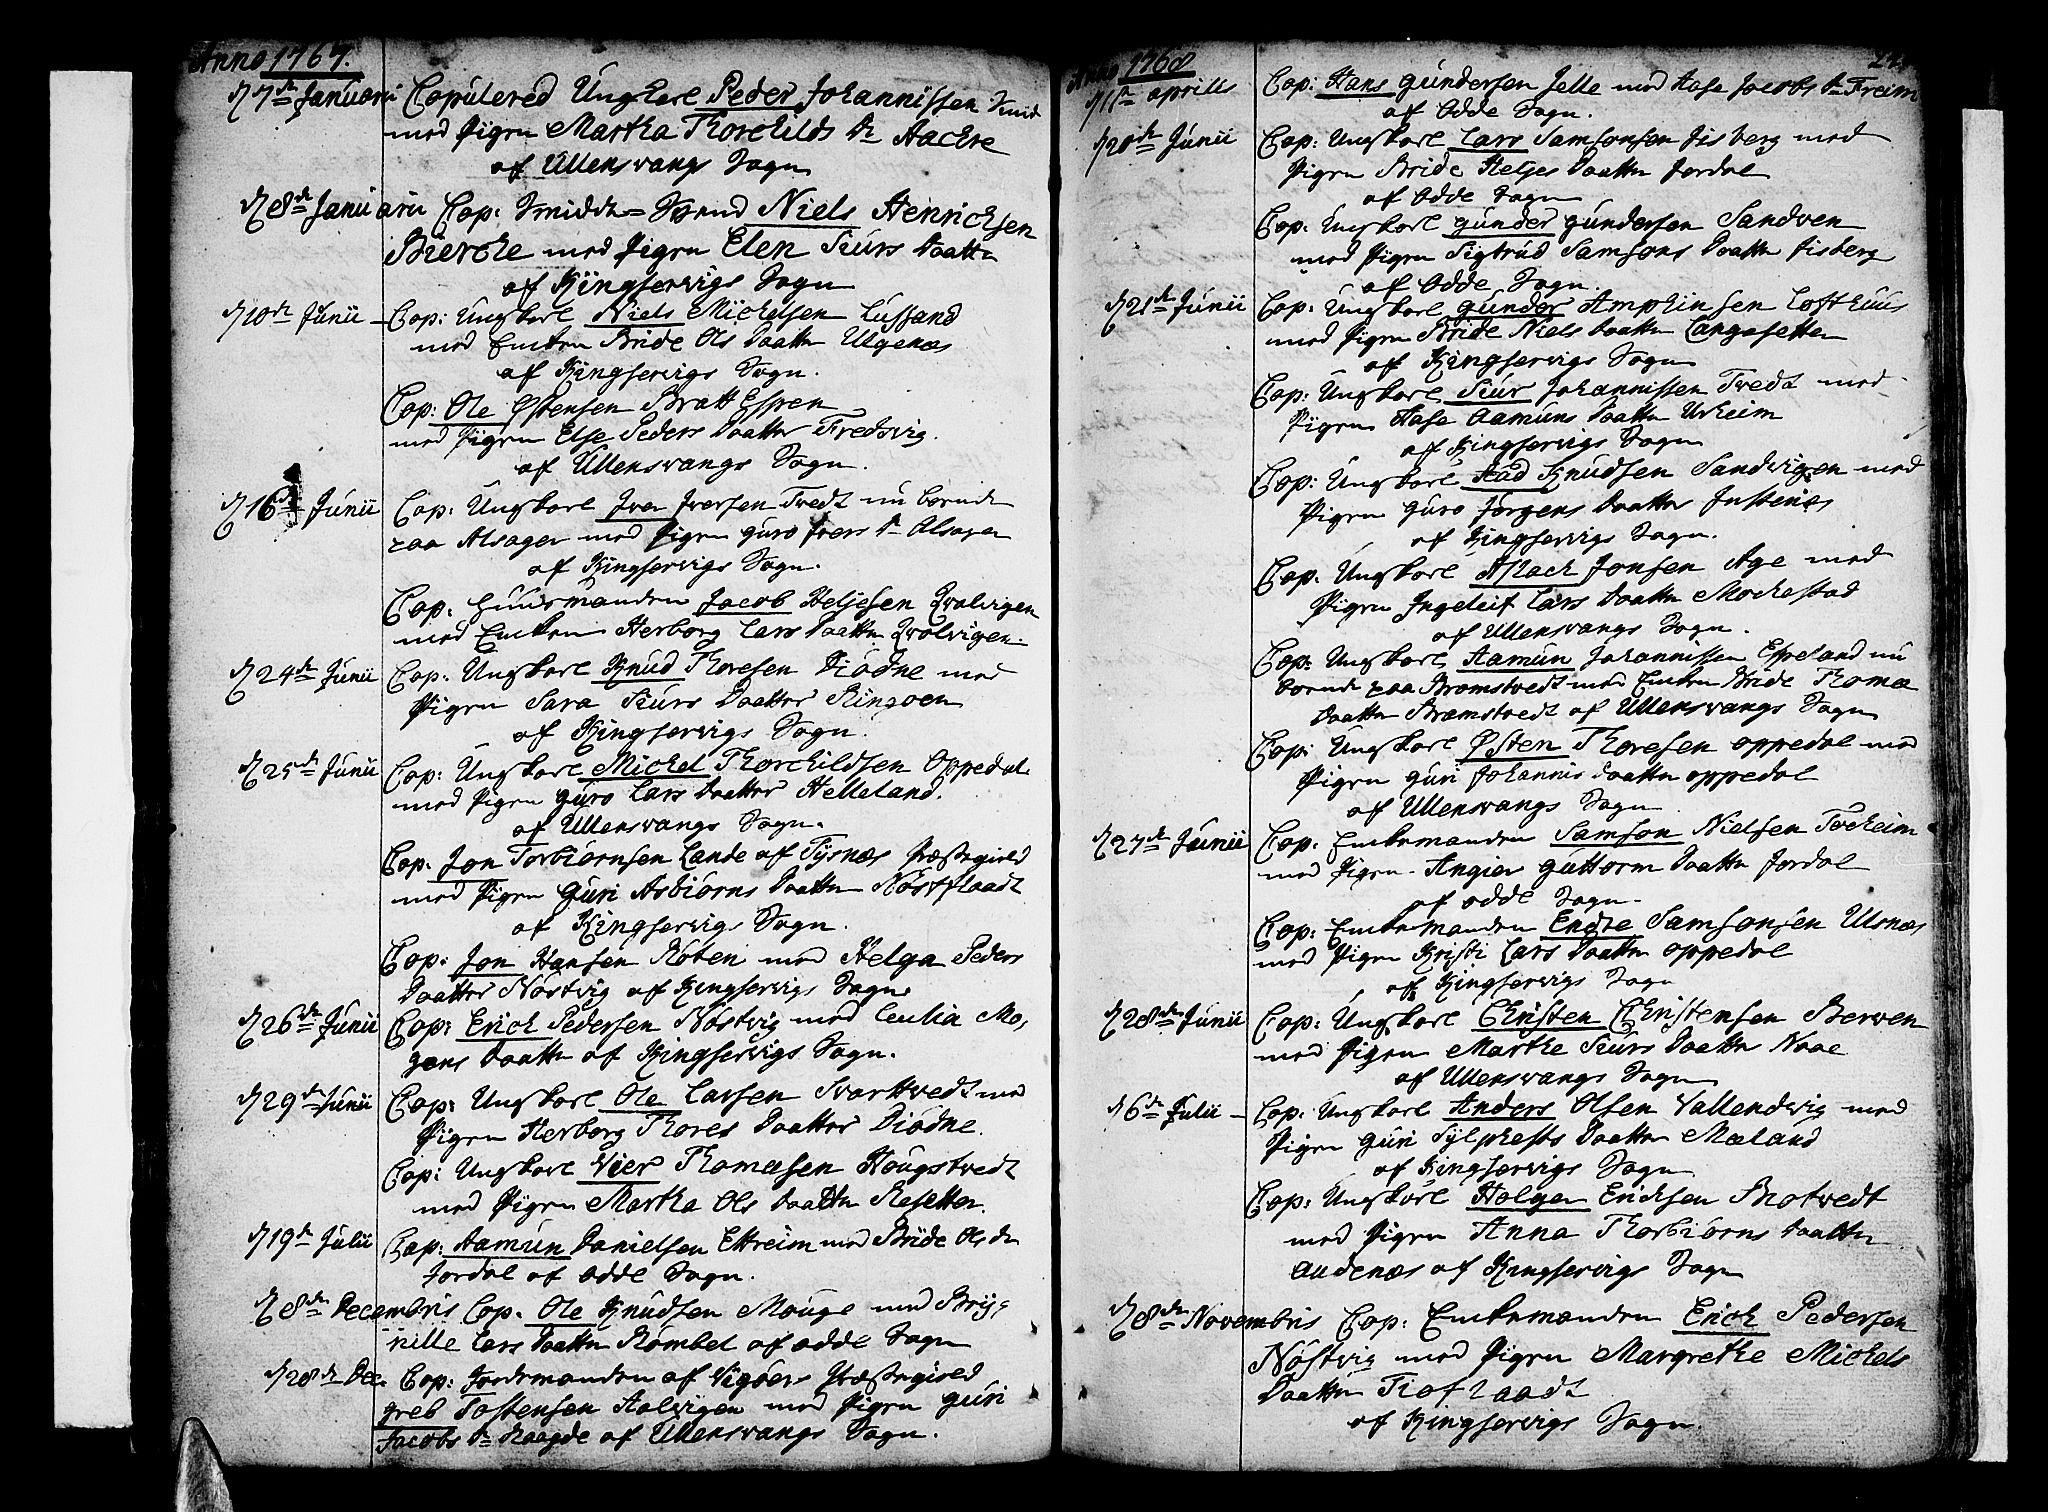 Anno 1767.
d 7de Januarii Copulered Ungkarl Peder Johannissen
med Pigen Martha Thorchilds Dr Aachre
af Ullensvangs Sogn
d 8de Januarii Cop: Niels Henrichsen
Bierche med Pigen Elen Siurs Daatter
af Kingservigs Sogn
d 10de Junii Cop: Ungkarl Niels Michelsen Lussand
med Enken Bride Ols Daatter Ulgenæs
af Kingservigs Sogn.
Cop: Ole Østensen Bratt Espen
med Pigen Else Peders Daatter Fredsvig.
af Ullensvangs Sogn.
d 16de Junii Cop: Ungkarl Iver Iversen Tvedt nu boende
paa Alsager med Pigen Guro Ivers Dr Alsager
af Kingservigs Sogn.
Cop: Huusmanden Jacob Heljesen Qvalvigen
med Enken Herborg Lars Daatter Qvalvigen.
d 24de Junii Cop: Ungkarl Knud Thoresen Diødne med
Pigen Sara Siurs Daatter Ringoen
af Kingservigs Sogn.
d 25de Junii Cop: Ungkarl Michel Thorchildsen Oppedal
med Pigen Guro Lars Daatter Helleland.
af Ullensvangs Sogn.
Cop: Jon Torbiørnsen Lande af Tysnæs Præstegield
med Pigen Guri Asbiørns Daatter Nøstflaadt
af Kingservigs Sogn.
Cop: Jon Hansen Koten med Helga Peders
Daatter Nøstvig af Kingservigs Sogn.
d 26de Junii Cop: Erich Pedersen Nøstvig med Cecilia Mo-
gens Daatter af Kingservigs Sogn.
d 29de Junii Cop: Ungkarl Ole Larsen Svarttvedt med
Pigen Herborg Thores Daatter Diødne.
Cop: Ungkarl Vier Thomasen Hougstvedt
med Pigen Martha Ols Daatter Resetter.
d 19de Julii Cop: Aamun Danielsen Eitreim med Bride Ols Dr
Jordal af Odde Sogn.
d 8de Decembris Cop: Ole Knudsen Mouge med Brij-
nille Lars Daatter Rømbel af Odde Sogn
d 28de Dec. Cop: af Vigøers Præstegield
Greb Tostensen Aalvigen med Pigen Guri
Jacobs Dr Haagde af Ullensvangs Sogn.
Anno 1768
d 11te Aprilis Cop: Hans Gundersen Jelle med Aase Jacobs Dr Freim
af Odde Sogn.
d 20de Junii Cop: Ungkarl Lars Samsonsen Jisberg med
Pigen Bride Heljes Daatter Jordal
af Odde Sogn
Cop: Ungkarl Gunder Gundersen Sandven
med Pigen Sigtrud Samsons Daatter Jisberg
af Odde Sogn.
d 21de Junii Cop: Ungkarl Gunder Amphinsen Lofthuus
med Pigen Bride Niels Daatter Langesetter
af Kingservigs Sogn
Cop: Ungkarl Siur Johannissen Tvedt med
Pigen Aase Aamuns Daatter Urheim
af Kingservigs Sogn
Cop: Ungkarl Aad Knudsen Sandvigen med
Pigen Guro Jørgens Daatter Justenæs
af Kingservigs Sogn.
Cop: Ungkarl Aslach Jonsen Age med
Pigen Ingeleif Lars Daatter Mochestad
af Ullensvangs Sogn.
Cop: Ungkarl Aamun Johannissen Espeland nu
boende paa Bramstvedt med Enken Bride Thomæ
Daatter Bramstvedt af Ullensvangs Sogn
Cop: Ungkarl Østen Thoresen Oppedal med
Pigen Guri Johannis Daatter Oppedal
af Ullensvangs Sogn
d 27de Junii Cop: Enkemanden Samson Nielsen Tocheim
med Pigen Angier Guttorm Daatter Jordal
af Odde Sogn.
Cop: Enkemanden Endre Samsonsen Ulsnæs
med Pigen Kristi Lars Daatter Oppedal
af Kingservigs Sogn
d 28de Junii Cop: Ungkarl Christen Christensen Berven
med Pigen Marthe Siurs Daatter Naae
af Ullensvangs Sogn
d 6de Julii Cop: Ungkarl Anders Olsen Vallendvig med
Pigen Guri Sylphests Daatter Mæland
af Kingservigs Sogn
Cop: Ungkarl Holgen Erichsen Brotvedt
med Pigen Anna Thorbiørns Daatter
Audenæs af Kingservigs Sogn
d 8de Novembris Cop: Enkemanden Erich Pedersen
Nøstvig med Pigen Margrethe Michels
Daatter Tioflaadt
af Kingservigs Sogn.